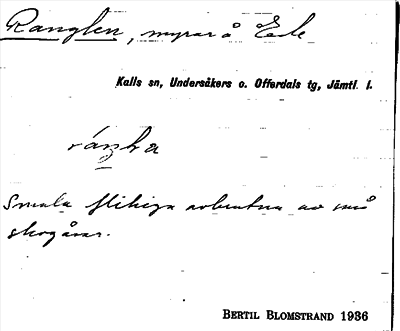 Ranglen, myrar å
Kalls sn, Undersåkers o. Offerdals tg, Jämtl. l.
Smala flikiga avbrutna av små
skogåsar.
BERTIL BLOMSTRAND 1936